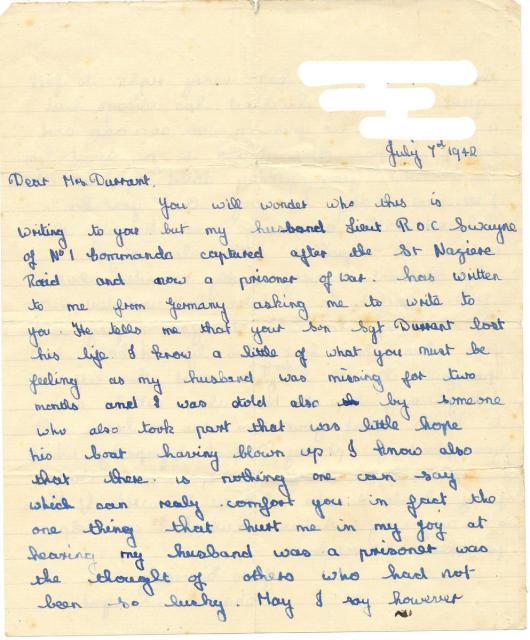 July 7st 1942
Dear Mrs Durrant.
You will wonder who this is
writing to you but my husband Lieut R.O.C Swayne
of No 1 Commando captured after the St Naziere
Raid and now a prisoner of war. has written
to me from Germany asking me to write to
you. He tells me that your son Sgt Durrant lost
his life. I know a little of what you must be
feeling as my husband was missing for two
months and I was told also by someone
who also took part that was little hope
his boat having blown up I know also
that there is nothing one can say
which can realy comfort you in fact the
one thing that hurt me in my joy at
hearing my husband was a prisoner was
the thought of others who had not
been so lucky. May I say however